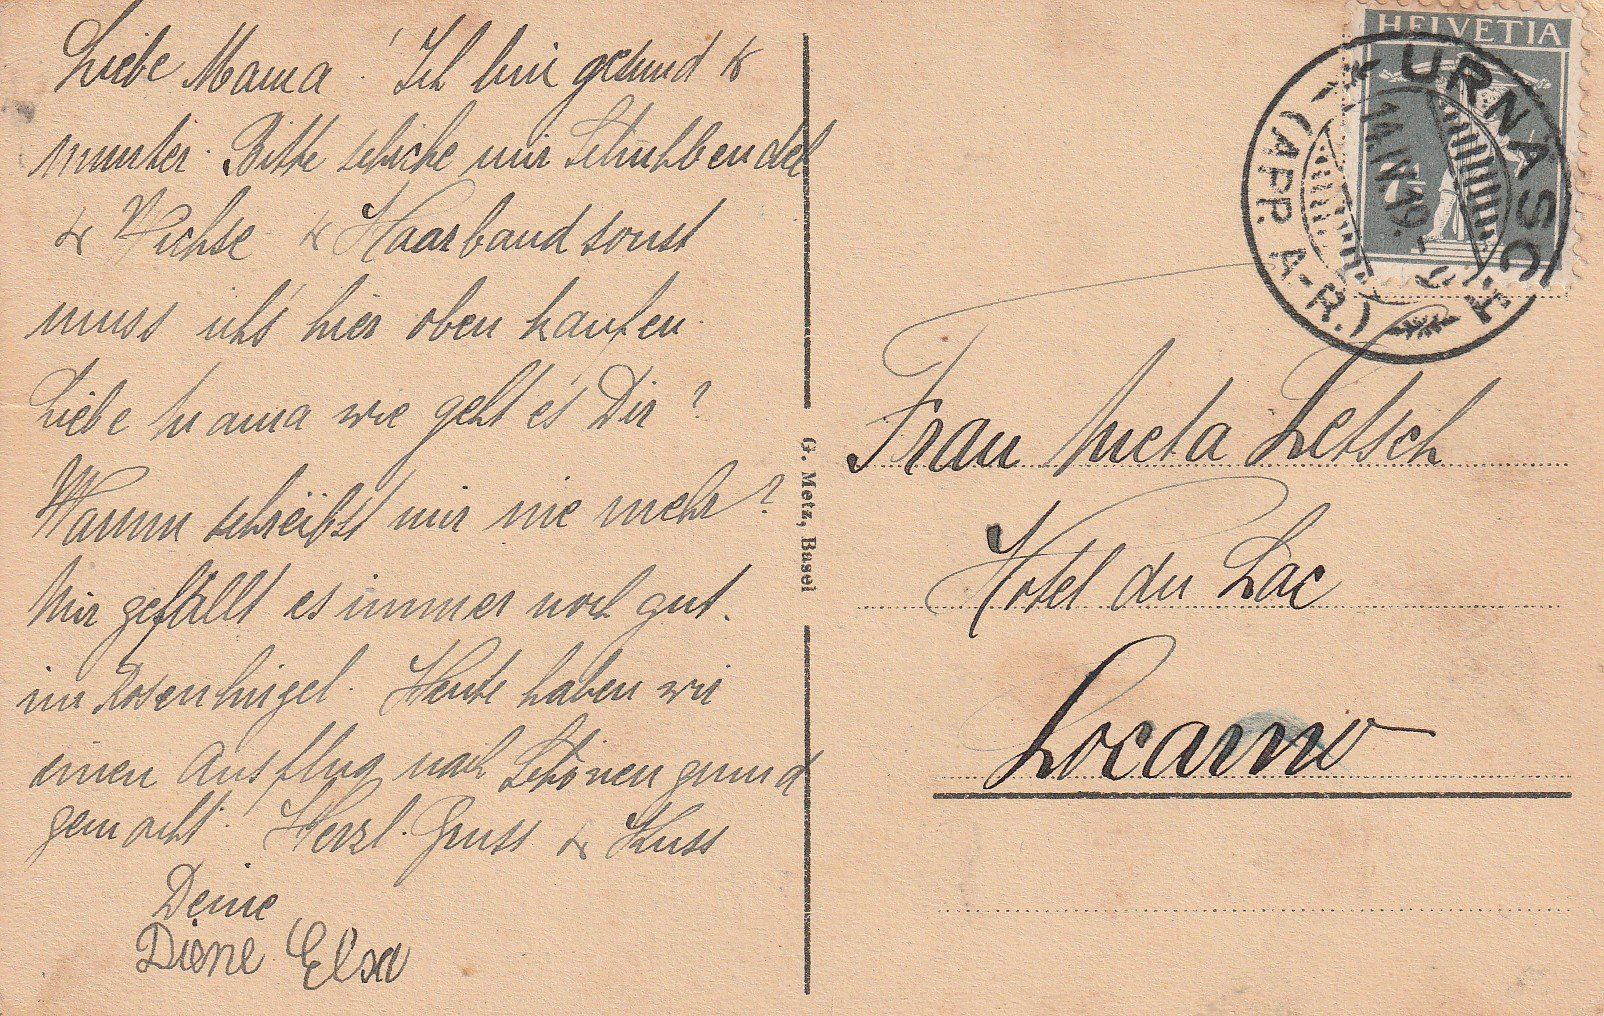 Liebe Mama! Ich bin gesund &
munter. Bitte schicke mir Schuhbendel
& Wichse & Haarband sonst
muss ich's hier oben kaufen.
Liebe Mama wie geht es Dir?
Warum schreibst mir nie mehr?
Mir gefällt es immer noch gut.
im Rosenhügel. Heute haben wir
einen Ausflug nach Schönengrund
gemacht. Herzl. Gruss & Kuss
Deine
Diene Elsa
G. Metz, Basel
HELVETIA
7½
URNÄSCH
(APP. A-R.)
Frau Meta Letsch
Hotel du Lac
Locarno